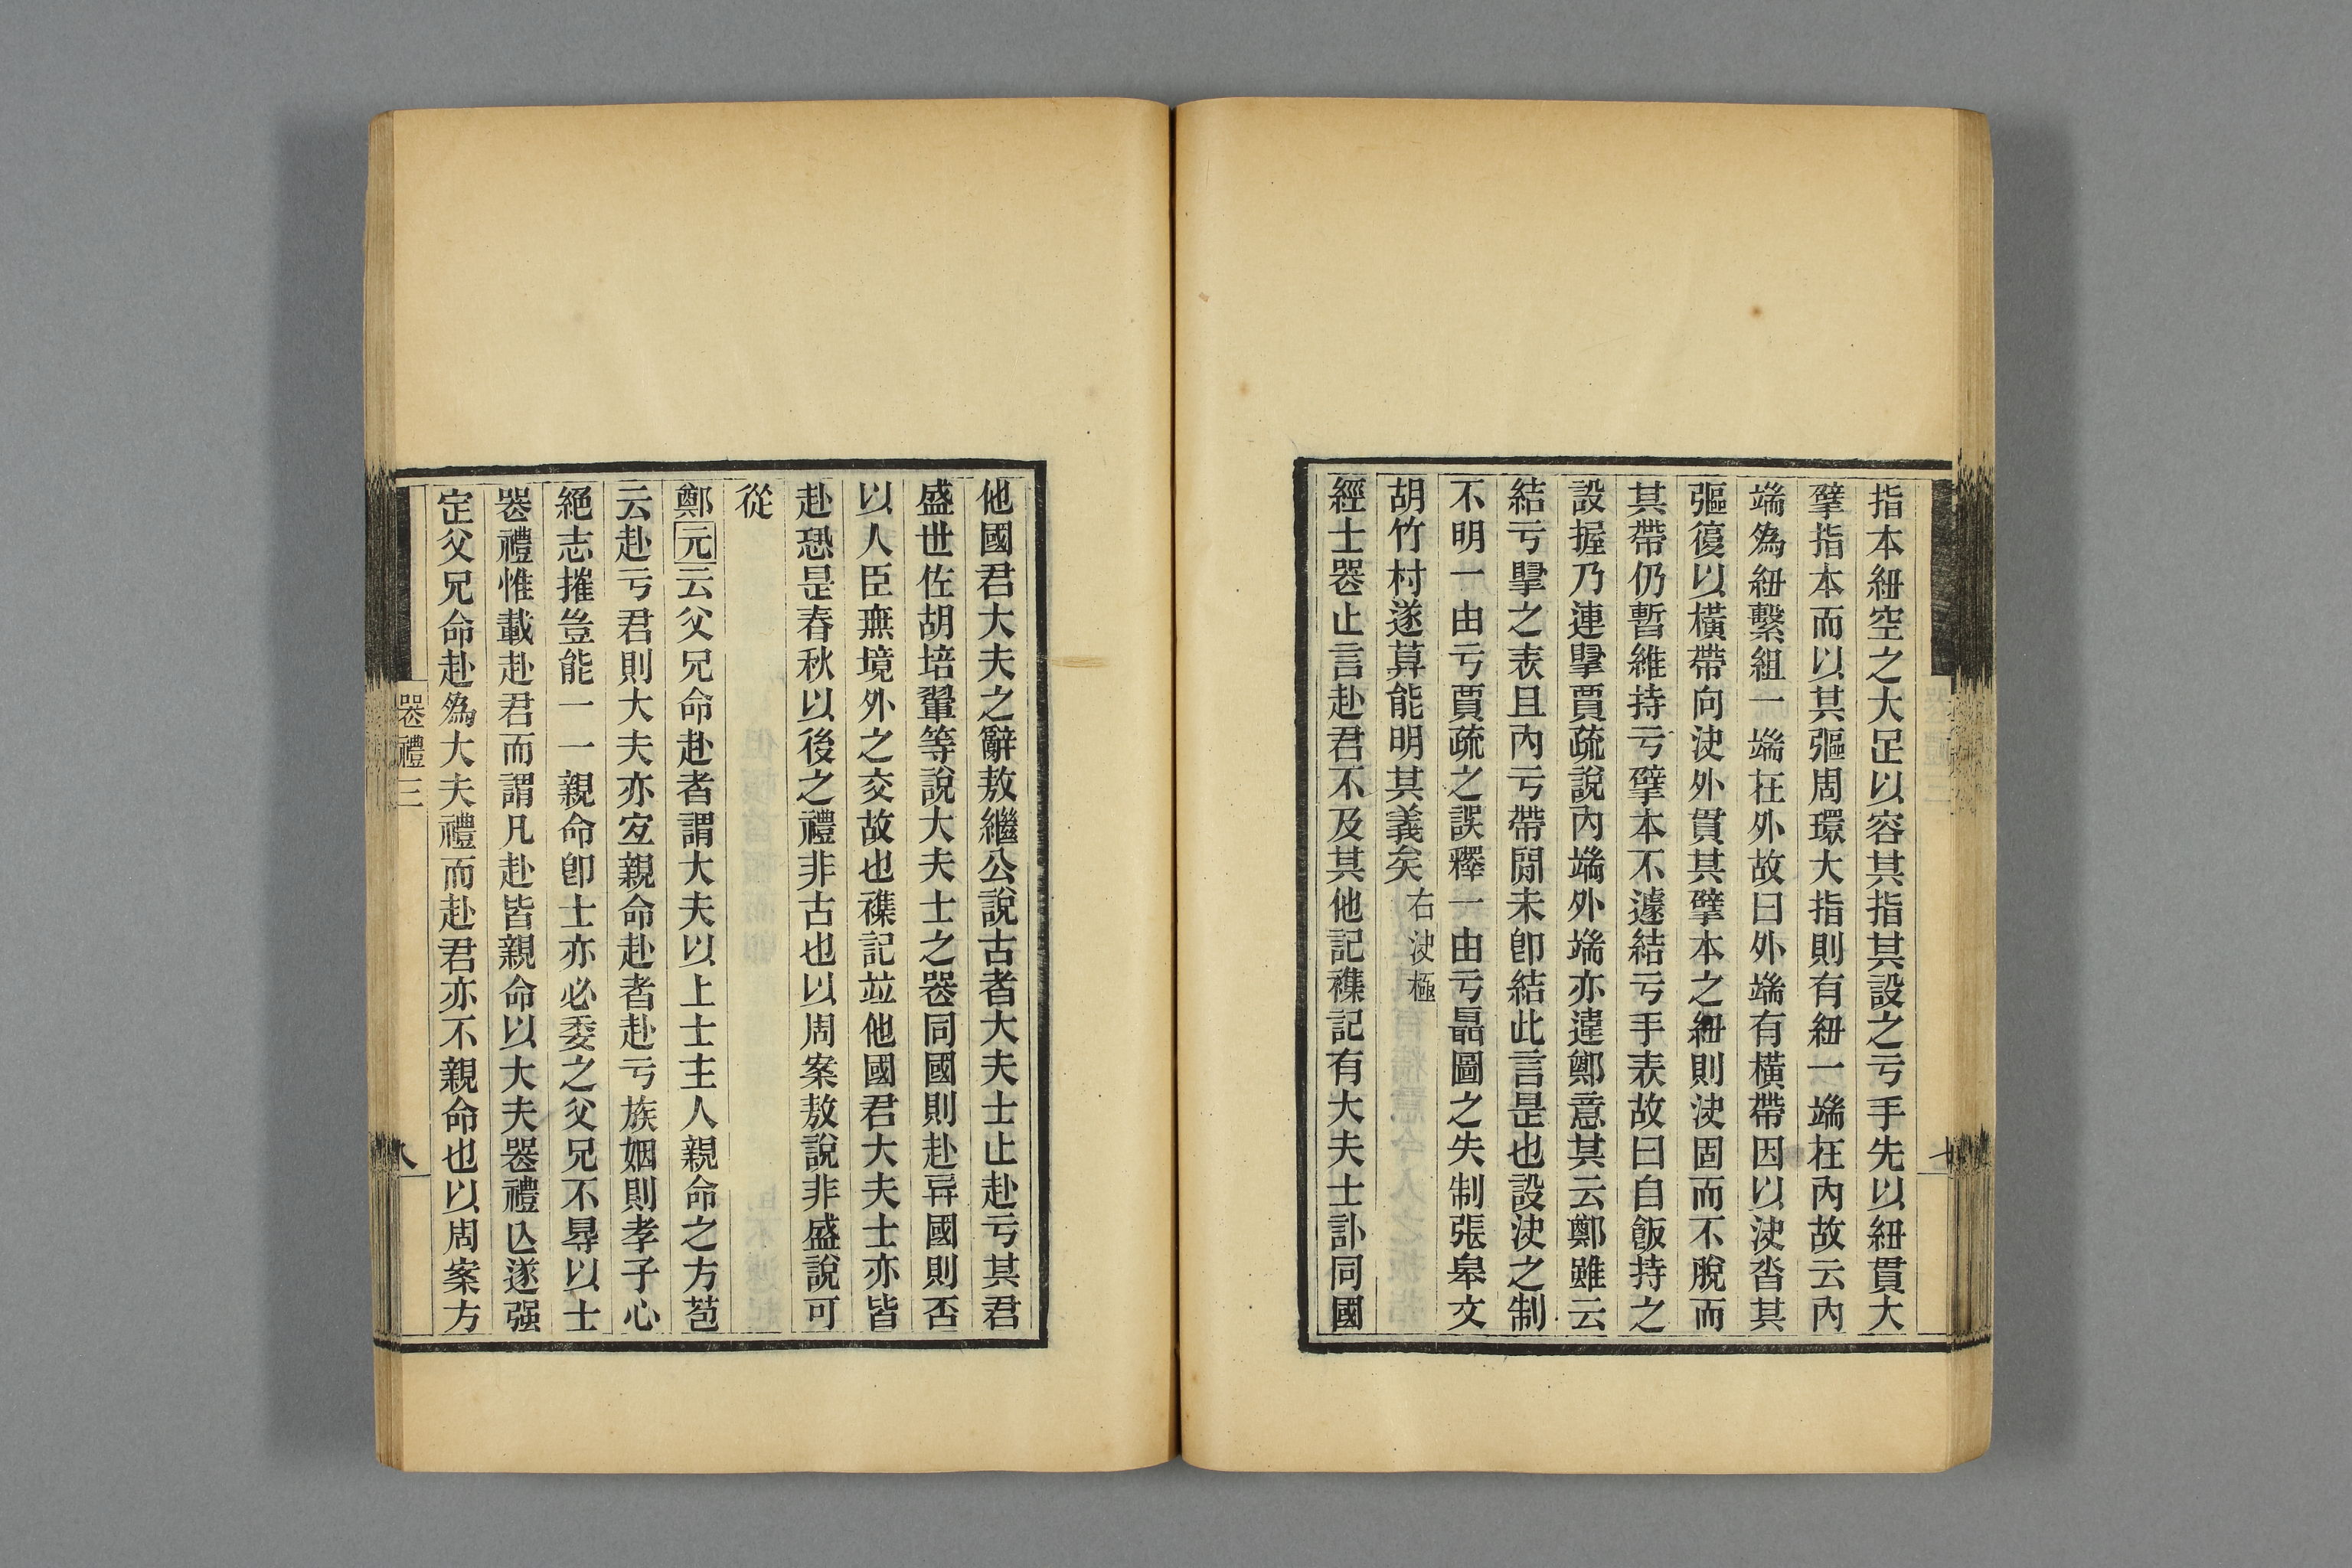 指本紐空之大足以容其指其設之亏手先以紐貫大
擘指本而以其彄周環大指則有紐一耑在內故云內
端爲紐繫組一端在外故曰外端有橫帶因以決沓其
彄復以橫帶向決外貫其擘本之紐則決固而不脫而
其帶仍暫維持亏擘本不遽結亏手表故曰自飯持之
設握乃連掔賈疏說內端外端亦違鄭意其云鄭雖云
結亏掔之表且內亏帶閒未卽結此言是也設決之制
不明一由亏賈疏之誤釋一由亏聶圖之失制張皋文
胡竹村遂莫能明其義矣右決極
經士喪止言赴君不及其他記襍記有大夫士訃同國
他國君大夫之辭敖繼公說古者大夫士止赴亏其君
盛世佐胡培翬等說大夫士之喪同國則赴異國則否
以人臣無境外之交故也襍記竝他國君大夫士亦皆
赴恐是春秋以後之禮非古也以周案敖說非盛說可
從
鄭元云父兄命赴者謂大夫以上士主人親命之方苞
云赴亏君則大夫亦宜親命赴者赴亏族姻則孝子心
絕志摧豈能一一親命卽士亦必委之父兄不得以士
喪禮惟載赴君而謂凡赴皆親命以大夫喪禮亾遂强
定父兄命赴爲大夫禮而赴君亦不親命也以周案方
喪禮三
八